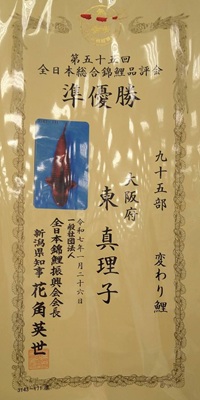 第五十五回
全日本総合錦鯉品評会
準優勝
九十五部 変わり鯉
大阪府
東 真理子
令和七年一月二十六日
一般社団法人
全日本錦鯉振興会会長
新潟県知事 花角英世